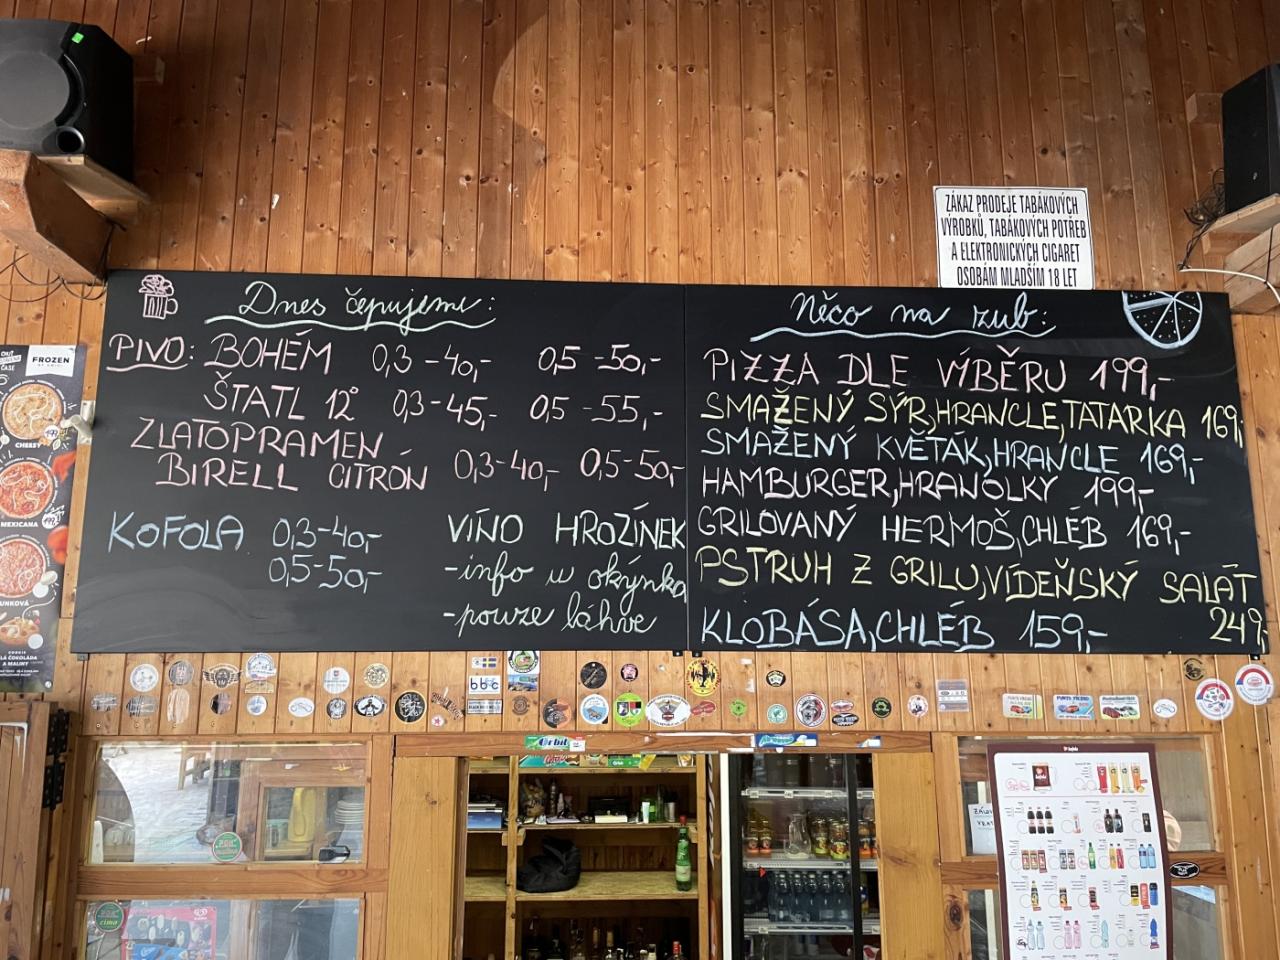 ZÁKAZ PRODEJE TABÁKOVÝCH
VÝROBKŮ, TABÁKOVÝCH POTŘEB
A ELEKTRONICKÝCH CIGARET
OSOBÁM MLADŠÍM 18 LET
Dnes čepujeme:
PIVO: BOHÉM 0,3-40,- 0,5-50,-
ŠTATL 12° 0,3-45,- 0,5-55,-
ZLATOPRAMEN
BIRELL CITRÓN 0,3-40,- 0,5-50,-
KOFOLA 0,3-40,-
0,5-50,-
VÍNO HROZÍNEK
-info w okýnka
-pouze láhve
Něco na zub:
PIZZA DLE VÝBĚRU 199,-
SMAŽENÝ SÝR,HRANCLE,TATARKA 169,-
SMAŽENÝ KVĚTÁK,HRANCLE 169,-
HAMBURGER,HRANOLKY 199,-
GRILOVANÝ HERMOŠ,CHLÉB 169,-
PSTRUH Z GRILU,VÍDEŇSKÝ SALÁT
249,-
KLOBÁSA,CHLÉB 159,-
FROZEN
CHEESY
MEXICANA
A MALINY
bbc
Orbit